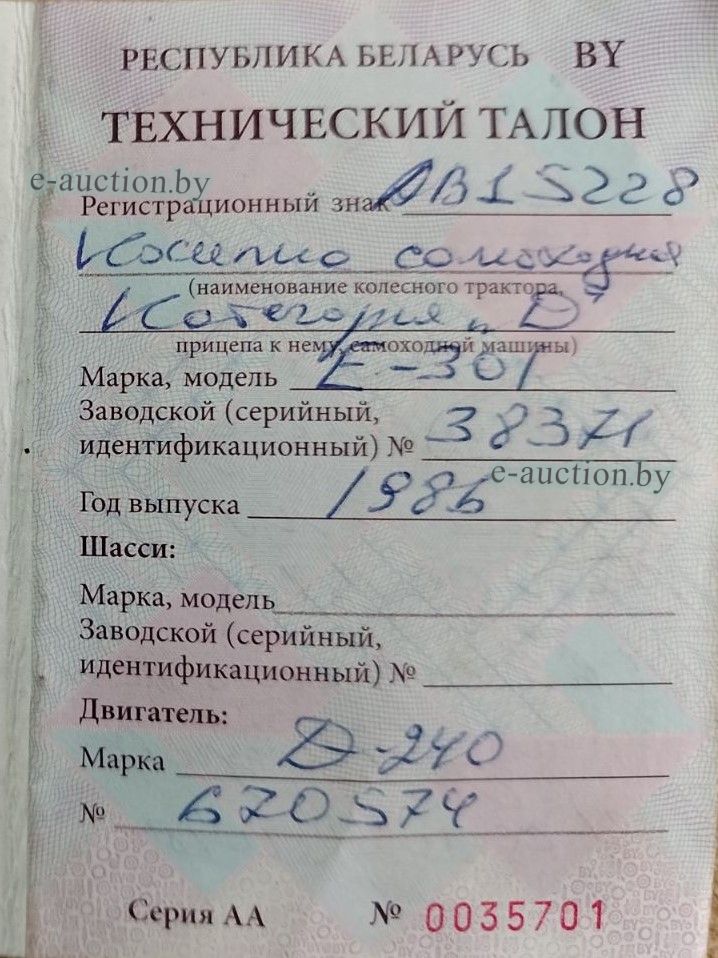 РЕСПУБЛИКА БЕЛАРУСЬ BY
ТЕХНИЧЕСКИЙ ТАЛОН
e-auction.by
Регистрационный знак ДВ1 5228
Косилка самоходная
(наименование колесного трактора,
Категория "D"
прицепа к нему, самоходной машины)
Марка, модель Е-301
Заводской (серийный,
идентификационный) № 38371
e-auction.by
Год выпуска 1986
Шасси:
Марка, модель
Заводской (серийный,
идентификационный) №
Двигатель:
Марка Д-240
№ 670574
Серия АА № 0035701